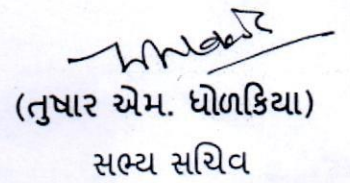 (તુષાર એમ. ધોળકિયા)
સભ્ય સચિવ